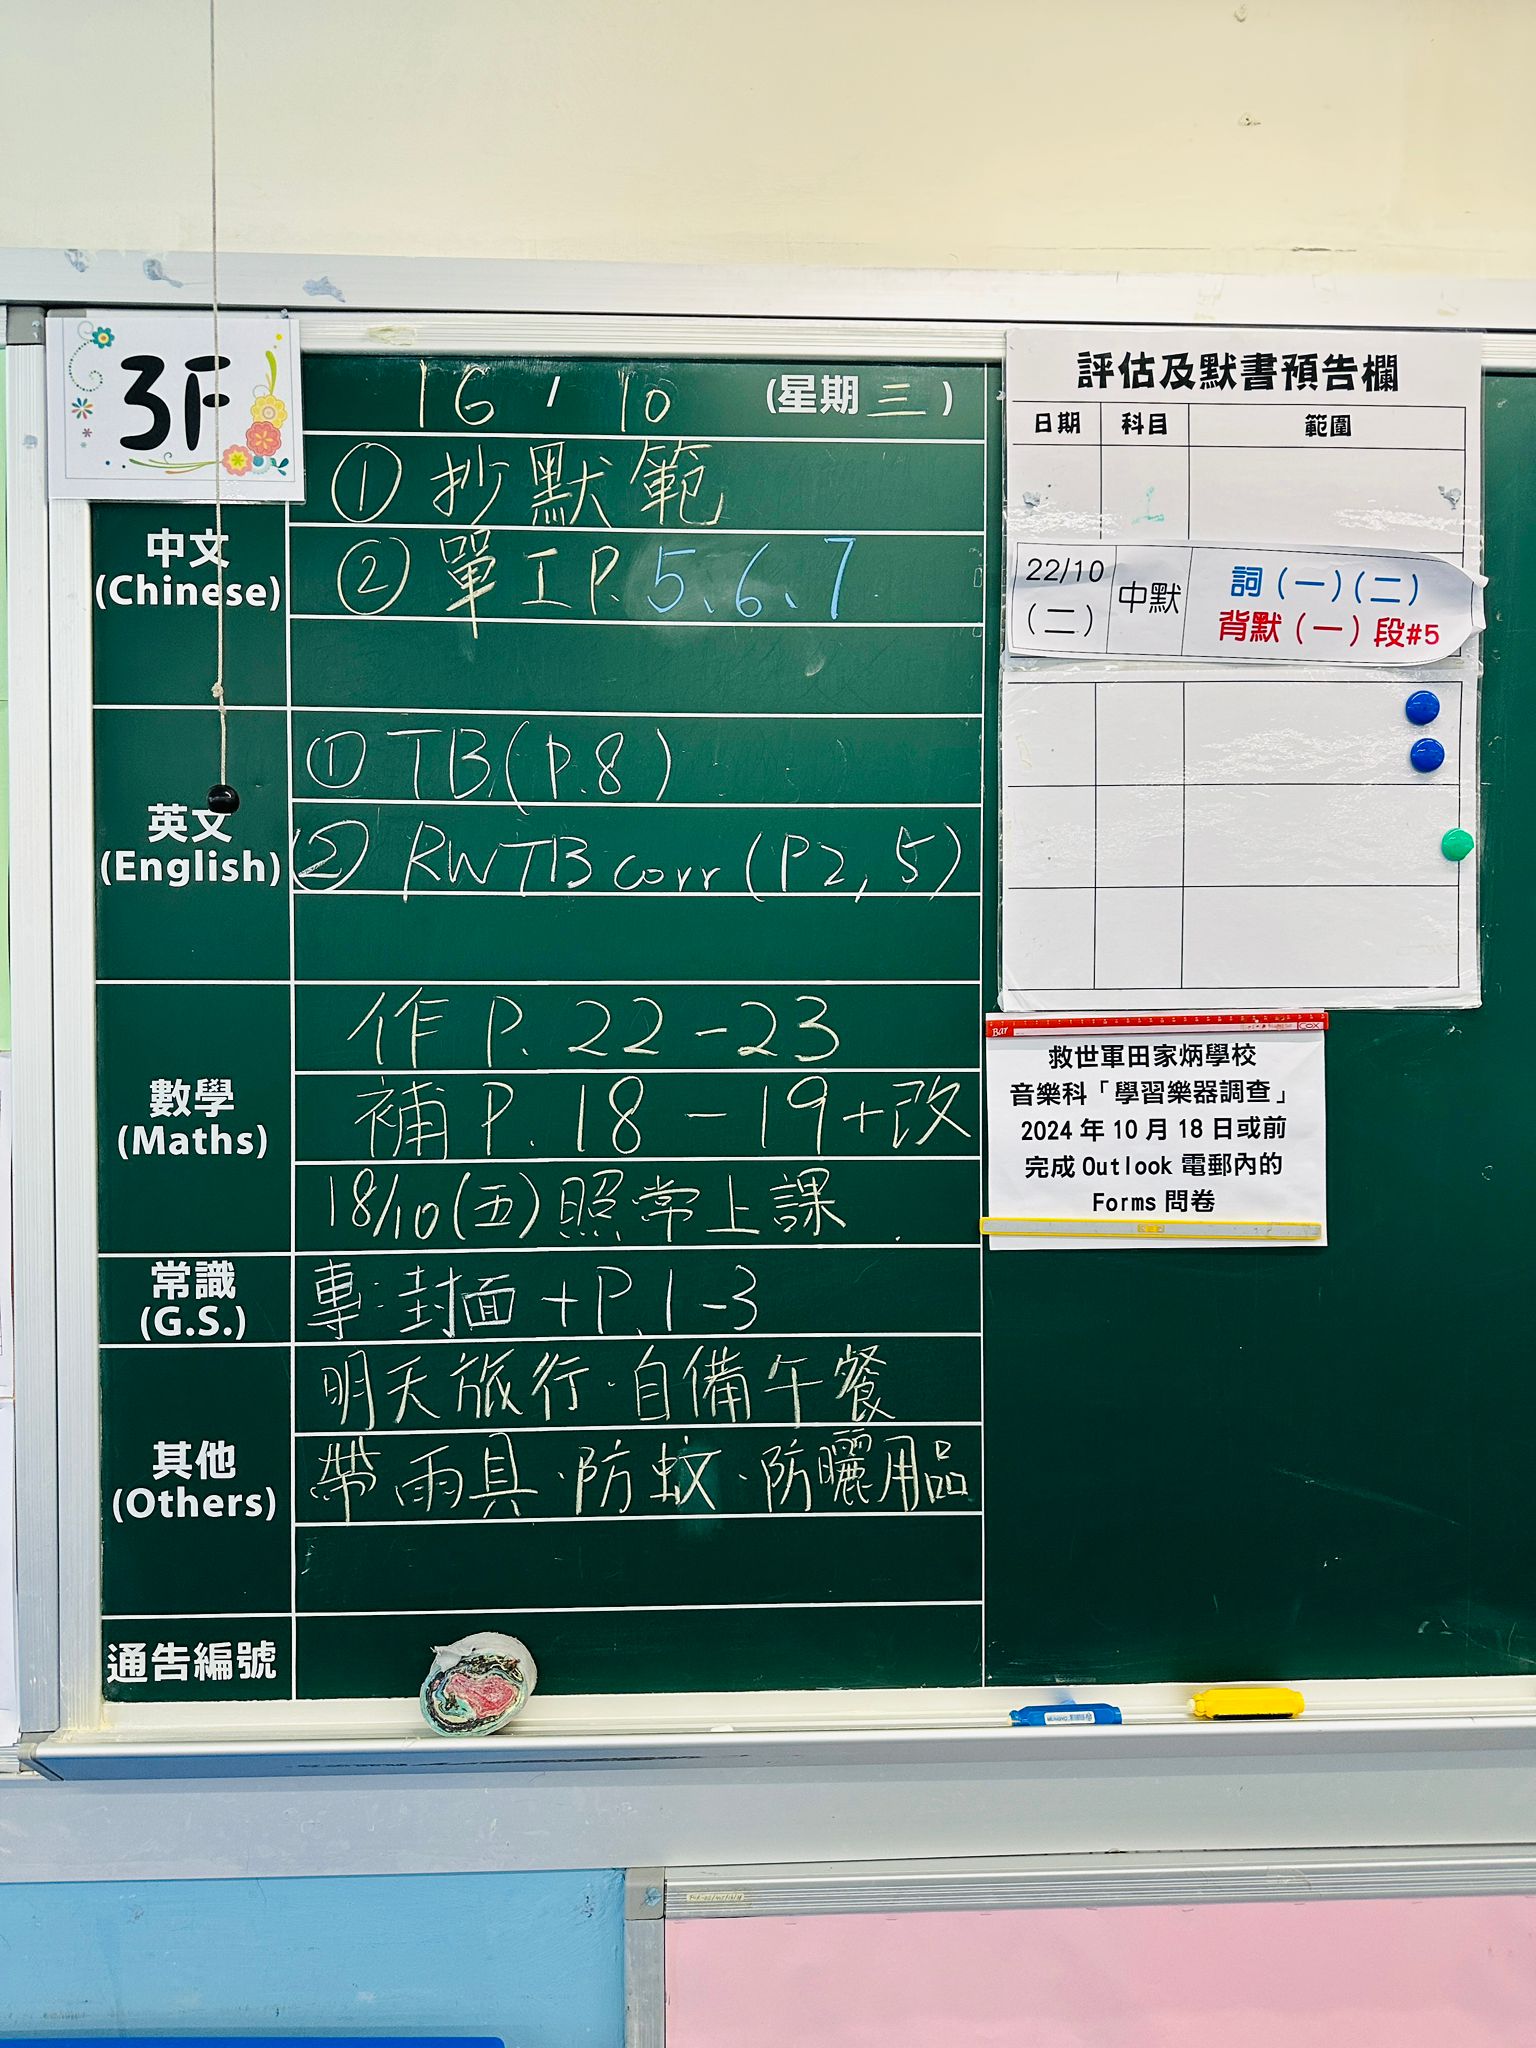 3F
16 / 10 (星期 三 )
中文
(Chinese)
① 抄默範
② 單工 P. 5、6、7
英文
(English)
① TB (P.8)
② RWTB corr (P2, 5)
數學
(Maths)
作 P. 22 - 23
補 P. 18 - 19 + 改
18/10 (五) 照常上課
常識
(G.S.)
專:封面 + P.1-3
其他
(Others)
明天旅行·自備午餐
帶雨具·防蚊·防曬用品
通告編號
評估及默書預告欄
日期 科目 範圍
22/10
(二)
中默
詞 (一) (二)
背默 (一) 段#5
Bar COX
救世軍田家炳學校
音樂科「學習樂器調查」
2024 年 10 月 18 日或前
完成 Outlook 電郵內的
Forms 問卷